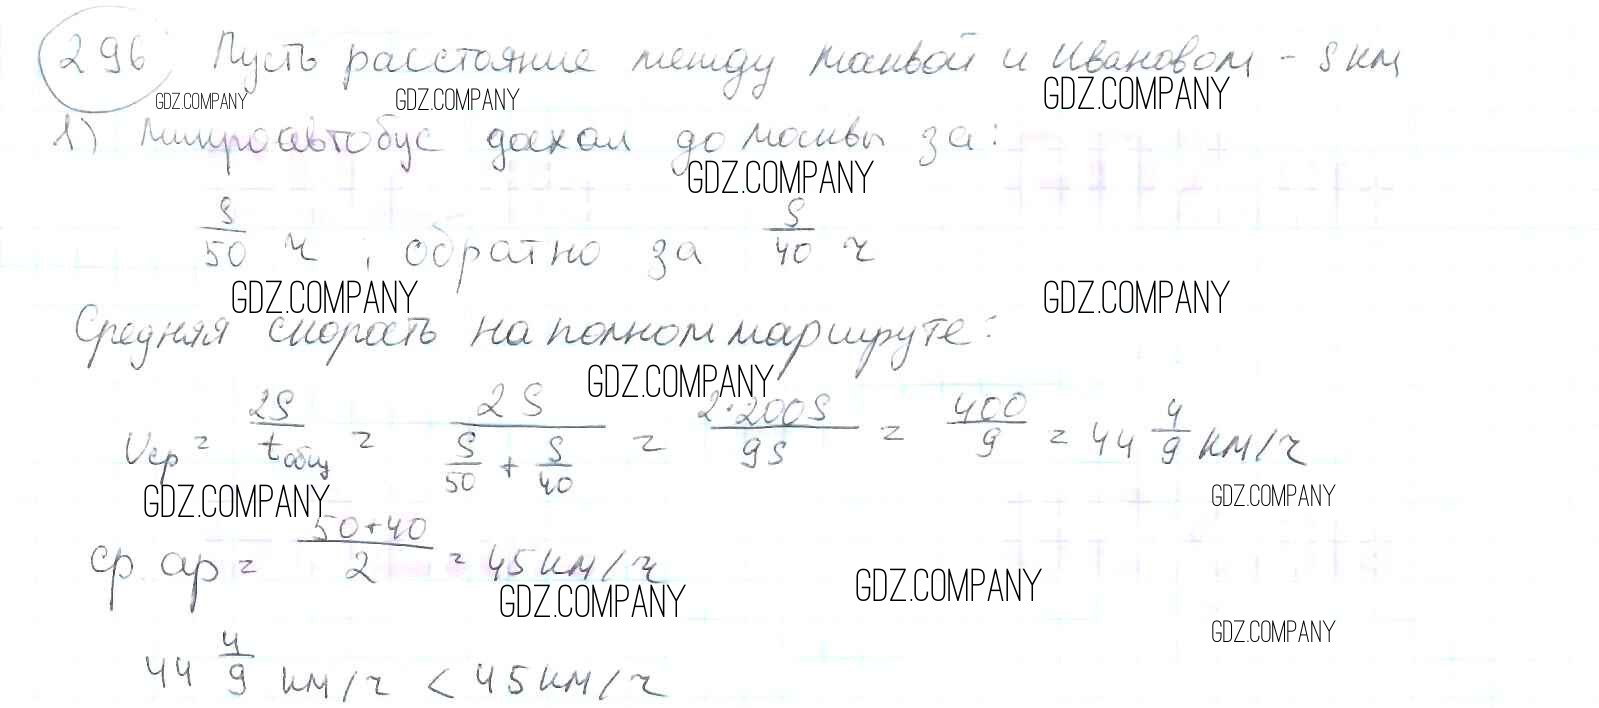 296 Пусть расстояние между Москвой и Ивановом - S км
GDZ.COMPANY GDZ.COMPANY GDZ.COMPANY
1) Микроавтобус доехал до Москвы за:
GDZ.COMPANY
S/50 ч , обратно за S/40 ч
GDZ.COMPANY GDZ.COMPANY
Средняя скорость на полном маршруте:
GDZ.COMPANY
Vср = 2S/tобщ = 2S/(S/50 + S/40) = 2·200S/9S = 400/9 = 44 4/9 км/ч
GDZ.COMPANY GDZ.COMPANY
ср ар = (50+40)/2 = 45 км/ч
GDZ.COMPANY GDZ.COMPANY
GDZ.COMPANY
44 4/9 км/ч < 45 км/ч